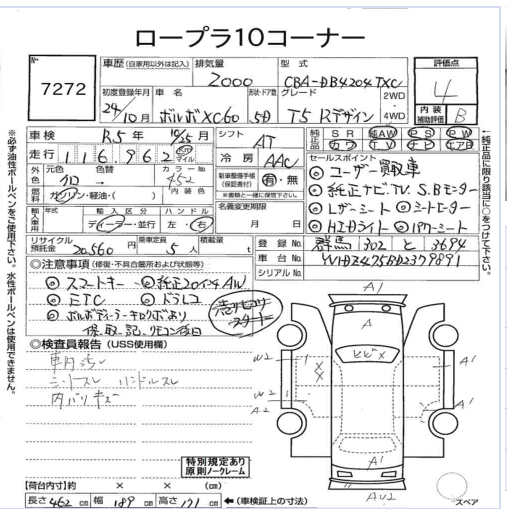 ロープラ10コーナー
No.
7272
車歴 (自家用以外は記入)
排気量
2000
型式
CBA-DB4204TXC
評価点
4
初度登録年月
24/10月
車名
ボルボXC60
形状・ドア数
5D
グレード
T5 Rデザイン
2WD
4WD
内装
補助評価
B
車検
R5年 10/25月
シフト
AT
純正品
SR
純AW
PS
PW
カワ
TV
ナビ
エアB
走行
116,962
km
マイル
冷房
AAC
セールスポイント
外色
元色
色替
カラーNo.
452
◎ユーザー買取車
燃料
ガソリン・軽油・( )
内装色
新車整備手帳
(保証書付)
有・無
◎純正ナビ.TV. S.Bモニター
輸入車用
年式
輸入区分
ディーラー・並行
ハンドル
左・右
名義変更期限
月 日
◎レザーシート ◎シートヒーター
◎HIDライト ◎パワーシート
リサイクル預託金
20,560円
乗車定員
5人
積載量
t
登録No.
群馬 302 と 3694
車台No.
シリアルNo.
◎注意事項 (修復・不具合箇所および状態等)
◎スマートキー ◎純正20インチAW
◎ETC ◎ドラレコ
◎ボルボディーラーキロクボあり
保、取、記、リモコン後日
◎検査員報告 (USS使用欄)
車内汚レ
シートスレ ハンドルスレ
内バリキズ
A1
A
ヒビ×
W2
××
A1
W2
A2
A1
A1
AU2
スペア
特別規定あり
原則ノークレーム
【荷台内寸】約 × × (cm)
長さ 462 cm 幅 189 cm 高さ 171 cm ←(車検証上の寸法)
※必ず油性ボールペンをご使用下さい。水性ボールペンは使用できません。
←純正品に限り該当に○をつけて下さい。